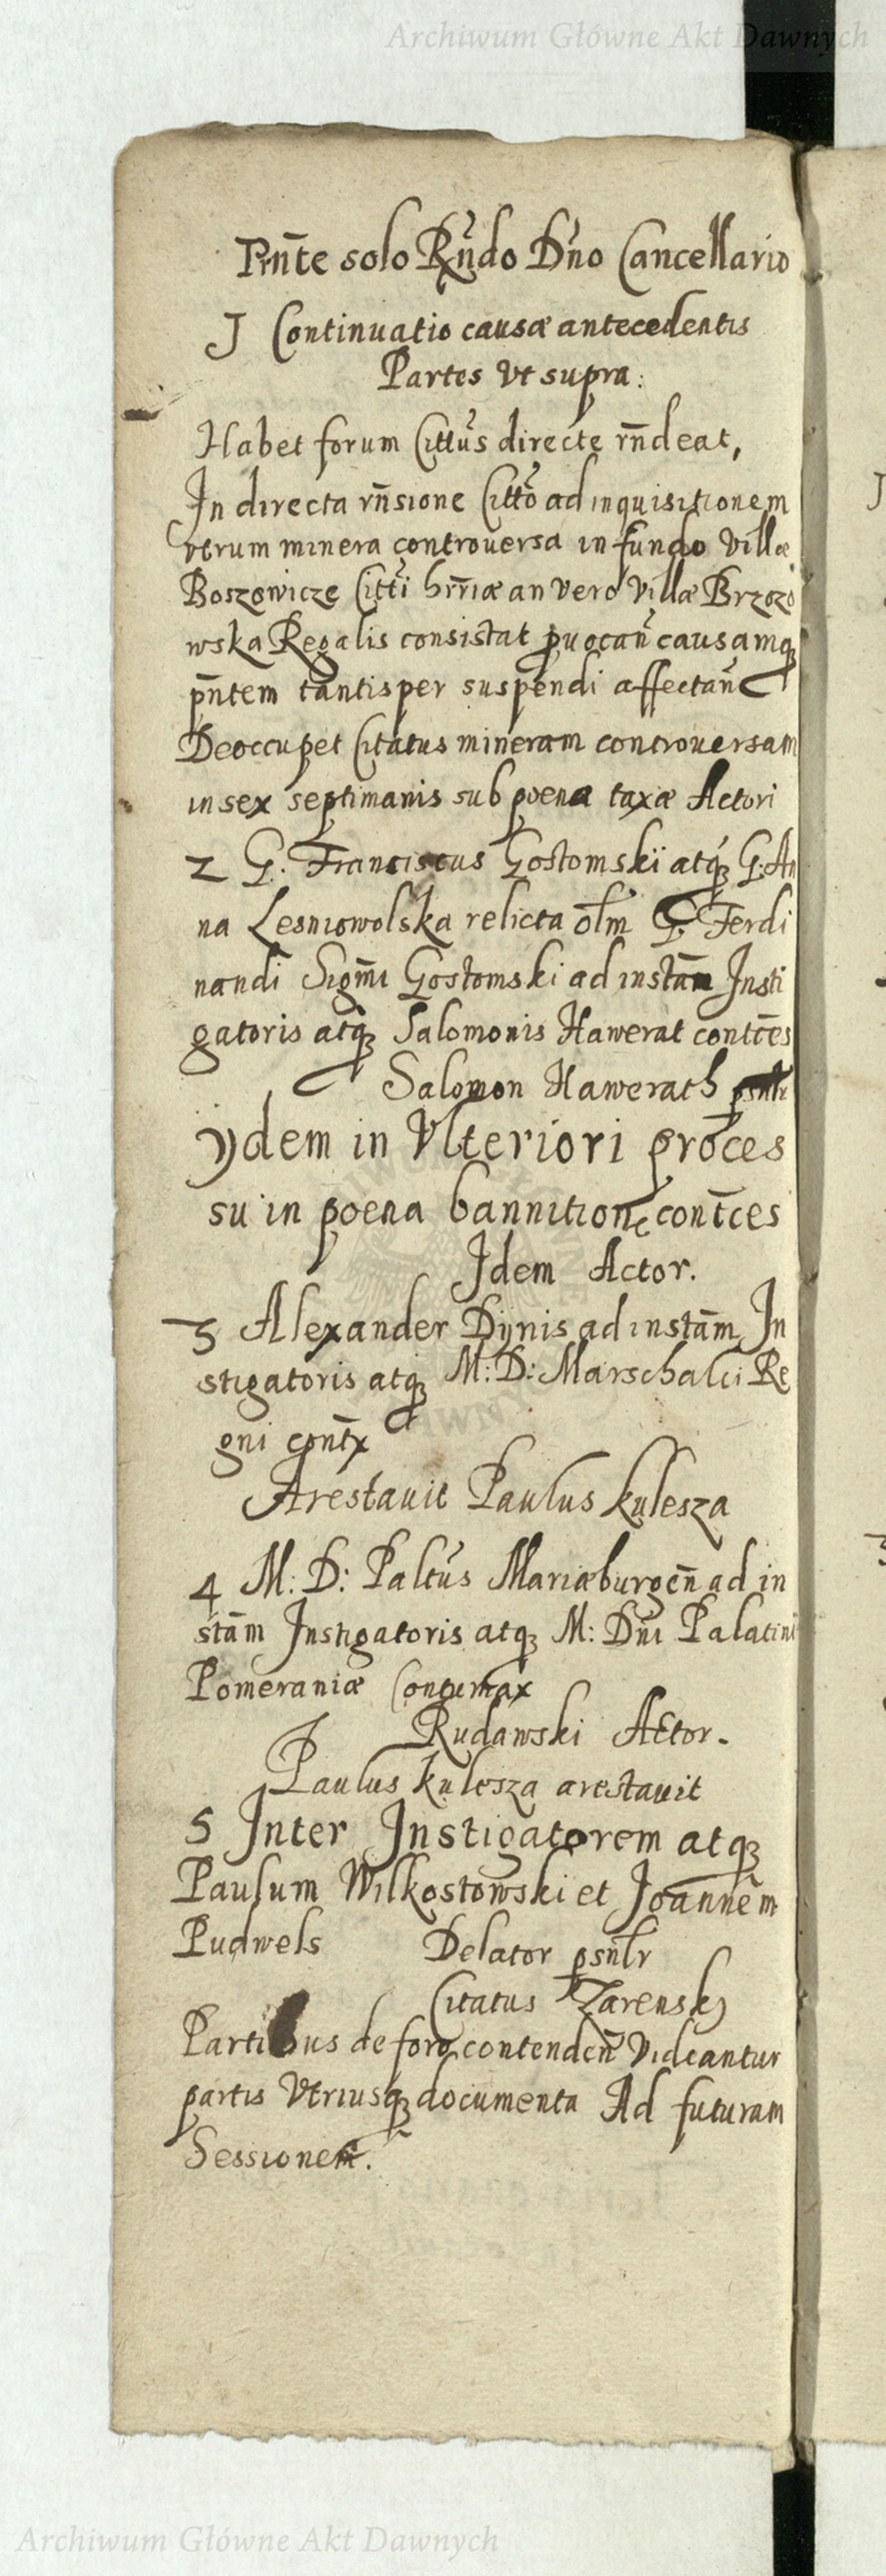 Archiwum Główne Akt Dawnych
Prn̄te solo Rn̄do Dn̄o Cancellario
J Continuatio causæ antecedentis
Partes Vt supra:
Habet forum Citt̃us directe rn̄deat,
In directa rn̄sione Citt̃o ad inquisitionem
vtrum minera controuersa in fundo Villæ
Boszowicze Citt̃i hrr̄iæ an vero Villæ Brzozo
wska Regalis consistat ꝓuocañ causamqꝫ
pn̄tem tantisper suspendi affectañ
Deoccupet Citatus mineram controuersam
in sex septimanis sub poena taxæ Actori
2 G. Franciscus Gostomskï atqꝫ G: An
na Lesniowolska relicta ol̄m G. Ferdi
nandi Sigm̄i Gostomski ad instān Insti
gatoris atqꝫ Salomonis Hawerat contc̄es
Salomon Hawerach psnlr
ÿdem in Vlteriori proces
su in poena bannitione contc̄es
Jdem Actor.
3 Alexander Dynis ad instām In
stigatoris atqꝫ M: D: Marschalci Re
gni cont̄x
Arestauit Paulus kulesza
4 M: D: Paltũs Mariæburgen̄ ad in
stām Instigatoris atqꝫ M: Dn̄i Palatini
Pomeraniæ Contumax
Rudawski Actor.
Paulus kulesza arestauit
5 Inter Instigatorem atqꝫ
Paulum Wilkostowski et Joannem
Pudwels Delator psnl̄r
Citatus Zarensky
Partibus de foro contenden̄ Videantur
partis Vtriusqꝫ documenta Ad futuram
Sessionem.
Archiwum Główne Akt Dawnych